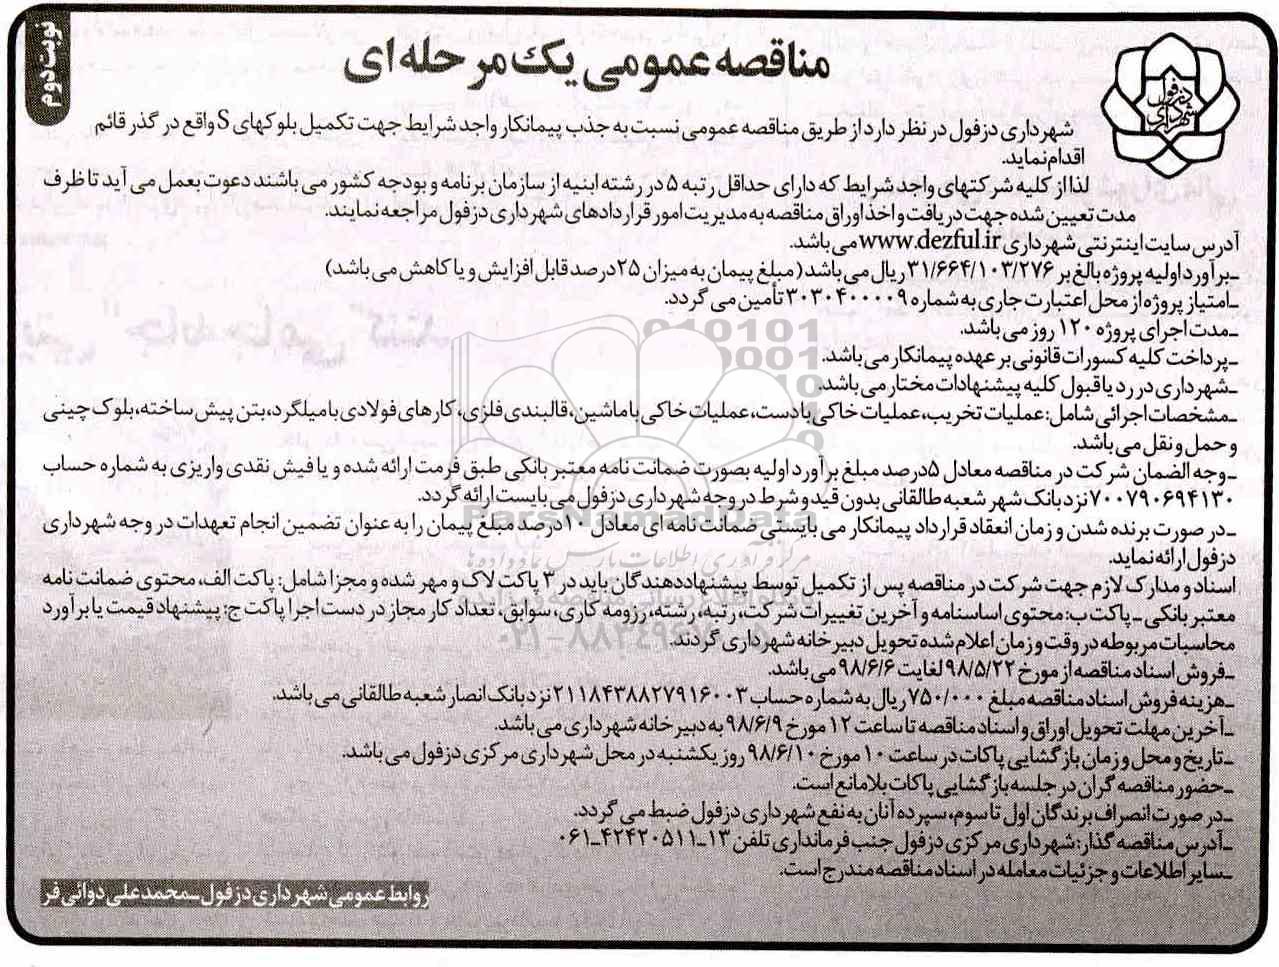 نوبت دوم
شهرداری دزفول
مناقصه عمومی یک مرحله ای
شهرداری دزفول در نظر دارد از طریق مناقصه عمومی نسبت به جذب پیمانکار واجد شرایط جهت تکمیل بلوکهای S واقع در گذر قائم
اقدام نماید.
لذا از کلیه شرکتهای واجد شرایط که دارای حداقل رتبه ۵ در رشته ابنیه از سازمان برنامه و بودجه کشور می باشند دعوت بعمل می آید تا ظرف
مدت تعیین شده جهت دریافت و اخذ اوراق مناقصه به مدیریت امور قراردادهای شهرداری دزفول مراجعه نمایند.
آدرس سایت اینترنتی شهرداری www.dezful.ir می باشد.
ـ برآورد اولیه پروژه بالغ بر ۳۱/۶۶۴/۱۰۳/۲۷۶ ریال می باشد (مبلغ پیمان به میزان ۲۵درصد قابل افزایش و یا کاهش می باشد)
ـ امتیاز پروژه از محل اعتبارت جاری به شماره ۳۰۳۰۴۰۰۰۰۹ تأمین می گردد.
ـ مدت اجرای پروژه ۱۲۰ روز می باشد.
ـ پرداخت کلیه کسورات قانونی بر عهده پیمانکار می باشد.
ـ شهرداری در رد یا قبول کلیه پیشنهادات مختار می باشد.
ـ مشخصات اجرائی شامل: عملیات تخریب، عملیات خاکی بادست، عملیات خاکی با ماشین، قالبندی فلزی، کارهای فولادی با میلگرد، بتن پیش ساخته، بلوک چینی
و حمل و نقل می باشد.
ـ وجه الضمان شرکت در مناقصه معادل ۵درصد مبلغ برآورد اولیه بصورت ضمانت نامه معتبر بانکی طبق فرمت ارائه شده و یا فیش نقدی واریزی به شماره حساب
۷۰۰۷۹۰۶۹۴۱۳۰ نزد بانک شهر شعبه طالقانی بدون قید و شرط در وجه شهرداری دزفول می بایست ارائه گردد.
ـ در صورت برنده شدن و زمان انعقاد قرارداد پیمانکار می بایستی ضمانت نامه ای معادل ۱۰درصد مبلغ پیمان را به عنوان تضمین انجام تعهدات در وجه شهرداری
دزفول ارائه نماید.
اسناد و مدارک لازم جهت شرکت در مناقصه پس از تکمیل توسط پیشنهاددهندگان باید در ۳ پاکت لاک و مهر شده و مجزا شامل: پاکت الف، محتوی ضمانت نامه
معتبر بانکی ـ پاکت ب: محتوی اساسنامه و آخرین تغییرات شرکت، رتبه، رشته، رزومه کاری، سوابق، تعداد کار مجاز در دست اجرا پاکت ج: پیشنهاد قیمت یا برآورد
محاسبات مربوطه در وقت و زمان اعلام شده تحویل دبیرخانه شهرداری گردند.
ـ فروش اسناد مناقصه از مورخ ۹۸/۵/۲۲ لغایت ۹۸/۶/۶ می باشد.
ـ هزینه فروش اسناد مناقصه مبلغ ۷۵۰/۰۰۰ ریال به شماره حساب ۲۱۱۸۴۳۸۸۲۷۹۱۶۰۰۳ نزد بانک انصار شعبه طالقانی می باشد.
ـ آخرین مهلت تحویل اوراق و اسناد مناقصه تا ساعت ۱۲ مورخ ۹۸/۶/۹ به دبیرخانه شهرداری می باشد.
ـ تاریخ و محل و زمان بازگشایی پاکات در ساعت ۱۰ مورخ ۹۸/۶/۱۰ روز یکشنبه در محل شهرداری مرکزی دزفول می باشد.
ـ حضور مناقصه گران در جلسه بازگشایی پاکات بلامانع است.
ـ در صورت انصراف برندگان اول تا سوم، سپرده آنان به نفع شهرداری دزفول ضبط می گردد.
ـ آدرس مناقصه گذار: شهرداری مرکزی دزفول جنب فرمانداری تلفن ۱۳ـ۴۲۴۲۰۵۱۱ـ۰۶۱
ـ سایر اطلاعات و جزئیات معامله در اسناد مناقصه مندرج است.
روابط عمومی شهرداری دزفول ـ محمدعلی دوائی فر
ParsNamadData
مرکز فرآوری اطلاعات پارس نماد داده ها